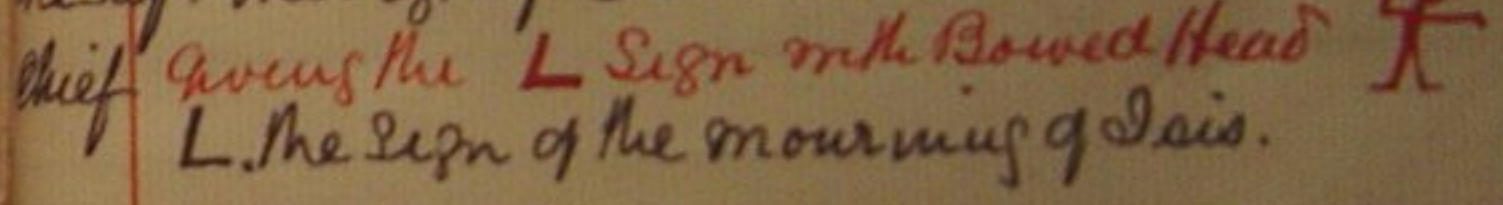 Chief giving the L Sign with Bowed Head
L. The Sign of the mourning of Isis.